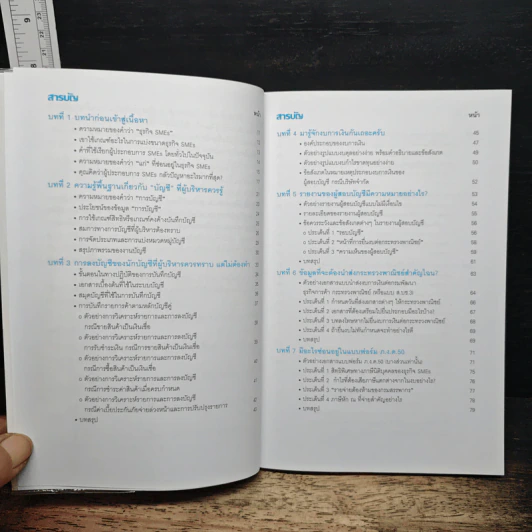 สารบัญ
หน้า
บทที่ 1 บทนำก่อนเข้าสู่เนื้อหา
• ความหมายของคำว่า "ธุรกิจ SMEs"
• เราใช้เกณฑ์อะไรในการแบ่งขนาดธุรกิจ SMEs
• คำที่ใช้เรียกผู้ประกอบการ SMEs โดยทั่วไปในปัจจุบัน
• ความหมายของคำว่า "แก่" ที่ซ่อนอยู่ในธุรกิจ SMEs
• คุณคิดว่าผู้ประกอบการ SMEs กลัวปัญหาอะไรมากที่สุด?
บทที่ 2 ความรู้พื้นฐานเกี่ยวกับ "บัญชี" ที่ผู้บริหารควรรู้
• ความหมายของคำว่า "การบัญชี"
• ประโยชน์ของข้อมูล "การบัญชี"
• การใช้เกณฑ์สิทธิหรือเกณฑ์คงค้างบันทึกบัญชี
• สมการทางการบัญชีที่ผู้บริหารต้องทราบ
• การจัดประเภทและการแบ่งหมวดหมู่บัญชี
• สรุปภาพรวมของงานบัญชี
บทที่ 3 การลงบัญชีของนักบัญชีที่ผู้บริหารควรทราบ แต่ไม่ต้องทำ
• ขั้นตอนในทางปฏิบัติของการบันทึกบัญชี
• เอกสารเบื้องต้นที่ใช้ในระบบบัญชี
• สมุดบัญชีที่ใช้ในการบันทึกบัญชี
• การบันทึกรายการค้าตามหลักบัญชีคู่
o ตัวอย่างการวิเคราะห์รายการและการลงบัญชี
กรณีขายสินค้าเป็นเงินเชื่อ
o ตัวอย่างการวิเคราะห์รายการและการลงบัญชี
การรับชำระเงิน กรณีการขายสินค้าเป็นเงินเชื่อ
o ตัวอย่างการวิเคราะห์รายการและการลงบัญชี
กรณีการซื้อสินค้าเป็นเงินเชื่อ
o ตัวอย่างการวิเคราะห์รายการและการลงบัญชี
กรณีการชำระค่าสินค้าเมื่อครบกำหนด
o ตัวอย่างการวิเคราะห์รายการและการลงบัญชี
กรณีค่าเบี้ยประกันภัยจ่ายล่วงหน้าและการปรับปรุงรายการ
• บทสรุป
สารบัญ
หน้า
บทที่ 4 มารู้จักงบการเงินกันเถอะครับ 46
• องค์ประกอบของงบการเงิน 47
• ตัวอย่างรูปแบบงบดุลอย่างง่าย พร้อมคำอธิบายและข้อสังเกต 48
• ตัวอย่างรูปแบบงบกำไรขาดทุนอย่างง่าย 50
• ข้อสังเกตในหมายเหตุประกอบงบการเงินของ
ผู้สอบบัญชี กรณีบริษัทจำกัด 52
บทที่ 5 รายงานของผู้สอบบัญชีมีความหมายอย่างไร? 53
• ตัวอย่างรายงานผู้สอบบัญชีแบบไม่มีเงื่อนไข 54
• รายละเอียดของรายงานผู้สอบบัญชี
• ข้อควรระวังและข้อสังเกตต่างๆ ในรายงานผู้สอบบัญชี
o ประเด็นที่ 1 "ชอบบัญชี"
o ประเด็นที่ 2 "หน้าที่การยื่นงบต่อกระทรวงพาณิชย์"
o ประเด็นที่ 3 "ความเห็นของผู้สอบบัญชี"
• บทสรุป
บทที่ 6 ข้อมูลที่จะต้องนำส่งกระทรวงพาณิชย์สำคัญไฉน? 63
• ตัวอย่างเอกสารแบบนำส่งงบการเงินต่อกรมพัฒนา
ธุรกิจการค้า กระทรวงพาณิชย์ (หรือแบบ ส.บช.3) 64
• ประเด็นที่ 1 กำหนดวันที่ส่งเอกสารต่างๆ ให้กระทรวงพาณิชย์
• ประเด็นที่ 2 เอกสารที่ต้องเตรียมไปยื่นประกอบมีอะไรบ้าง
• ประเด็นที่ 3 บทลงโทษหากไม่ยื่นงบการเงินต่อกระทรวงพาณิชย์
• ประเด็นที่ 4 ถ้ายื่นงบไม่ทันกำหนดจะทำอย่างไรดี
• บทสรุป
บทที่ 7 มีอะไรซ่อนอยู่ในแบบฟอร์ม (ภ.ง.ด.50) 71
• ตัวอย่างแบบฟอร์ม ภ.ง.ด.50 (บางส่วนเท่านั้น) 71
• ประเด็นที่ 1 สิทธิพิเศษทางภาษีนิติบุคคลของธุรกิจ SMEs
• ประเด็นที่ 2 กำไรที่ต้องเสียภาษีแตกต่างจากในงบอย่างไร?
• ประเด็นที่ 3 "รายจ่ายต้องห้ามของกรมสรรพากร" 77
• ประเด็นที่ 4 ภาษีหัก ณ ที่จ่ายสำคัญอย่างไร 78
• บทสรุป 79